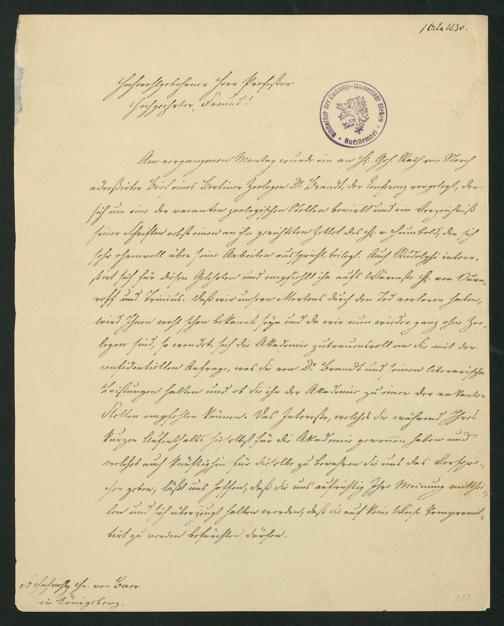 1 Octb 1830.
Hochwohlgeborner Herr Professor
Hochgeehrter Freund!
Bibliothek der Ludwigs-Universität Giessen
Am vergangenen Montag wurde ein an H. Geh. Rath von Storch
adressirter Brief eines Berliner Zoologen Dr. Brandt, der Conferenz vorgelegt, der
sich um eine der vacanten zoologischen Stellen bewirbt und ein Verzeichniß
seiner Schriften nebst einem an ihn gerichteten Brief des H. v. Humboldt, der sich
sehr ehrenvoll über seine Arbeiten ausspricht, beilegt. Auch Rudolphi interes-
sirt sich für diesen Gelehrten und empfiehlt ihn aufs Wärmste H. von Ouwa-
roff und Trinius. Daß wir unsern Mertens durch den Tod verloren haben,
wird Ihnen wohl schon bekannt seyn und da wir nun wieder ganz ohne Zoo-
logen sind, so wendet sich die Akademie zutrauensvoll an Sie mit der
confidentiellen Anfrage, was Sie von Dr. Brandt und seinen literarischen
Leistungen halten und ob Sie ihn der Akademie zu einer der vakanten
Stellen empfehlen können. Das Interesse, welches Sie während Ihres
kurzen Aufenthalts hieselbst für die Akademie gewonnen haben und
welches auch künftighin für dieselbe zu bewahren Sie uns das Verspre-
chen gaben, läßt uns hoffen, daß Sie uns aufrichtig Ihre Meinung mitthei-
len und sich überzeugt halten werden, daß Sie auf keine Weise kompromit-
tirt zu werden befürchten dürfen.
von Baer
in Königsberg.